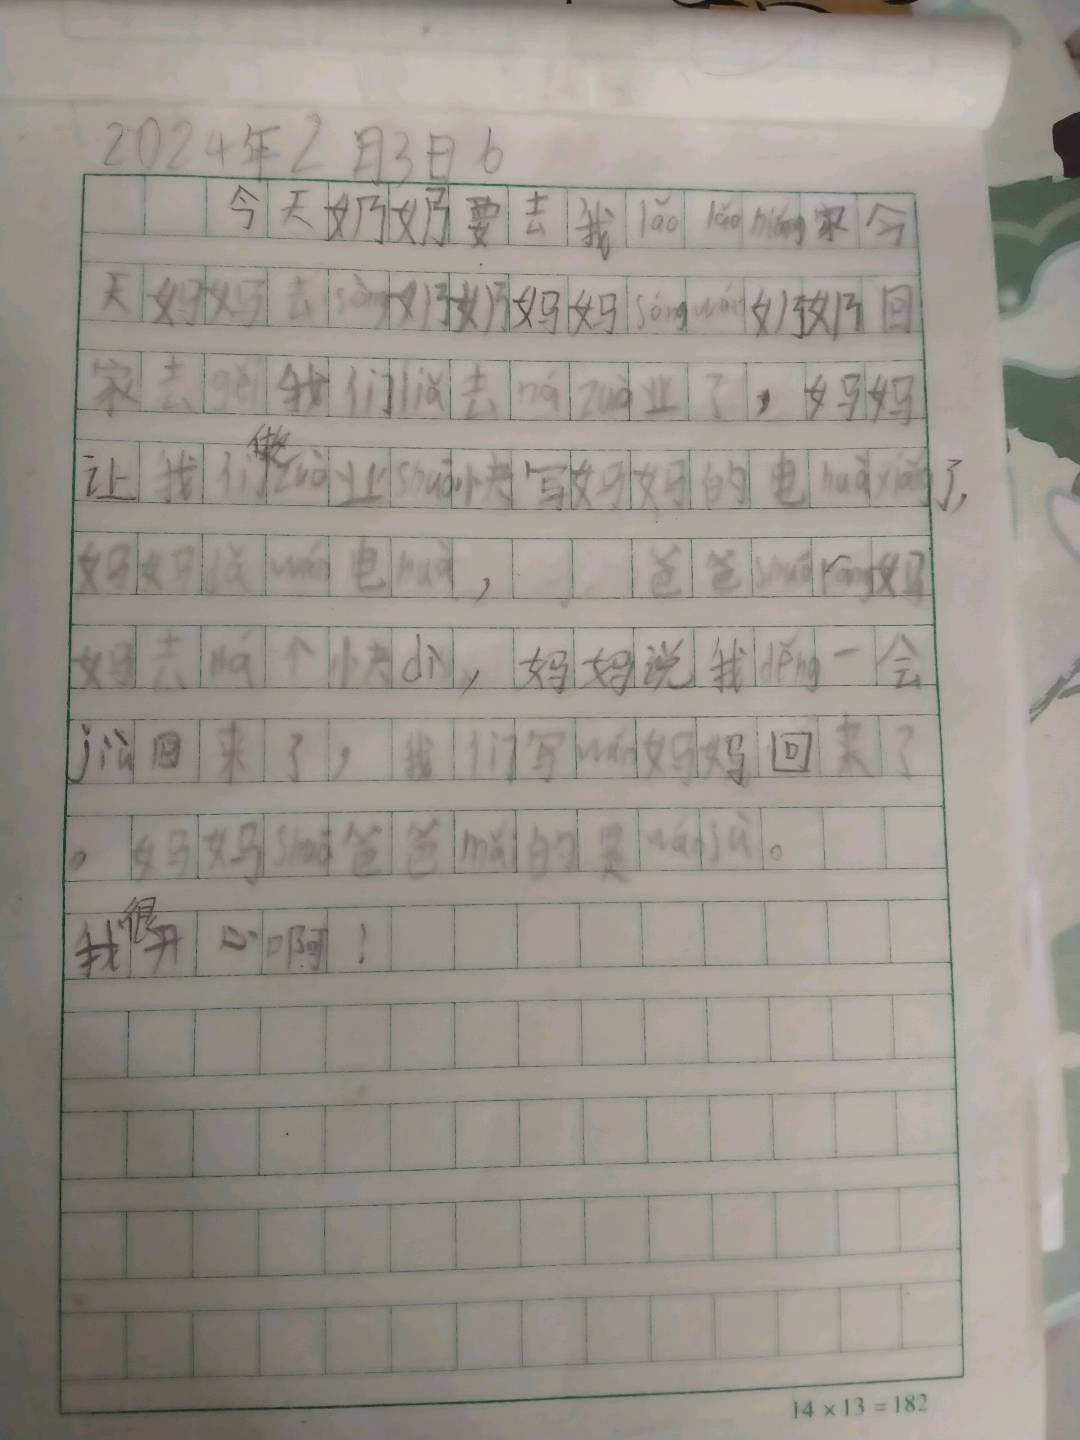 2024年2月3日6
今天奶奶要去我lǎo lǎo niáng家今
天妈妈去sòng奶奶妈妈sòng wán奶奶回
家去gěi我们liǎ去ná zuò业了，妈妈
让我们做zuò业shuō快写妈妈的电huà xiǎng了,
妈妈 wán电huà，爸爸shuō ràng妈
妈去ná个快dì，妈妈说我děng一会
jiù回来了，我们写wán妈妈回来了
。妈妈shuō爸爸mǎi的是wán jù。
我很开心啊！
14×13=182